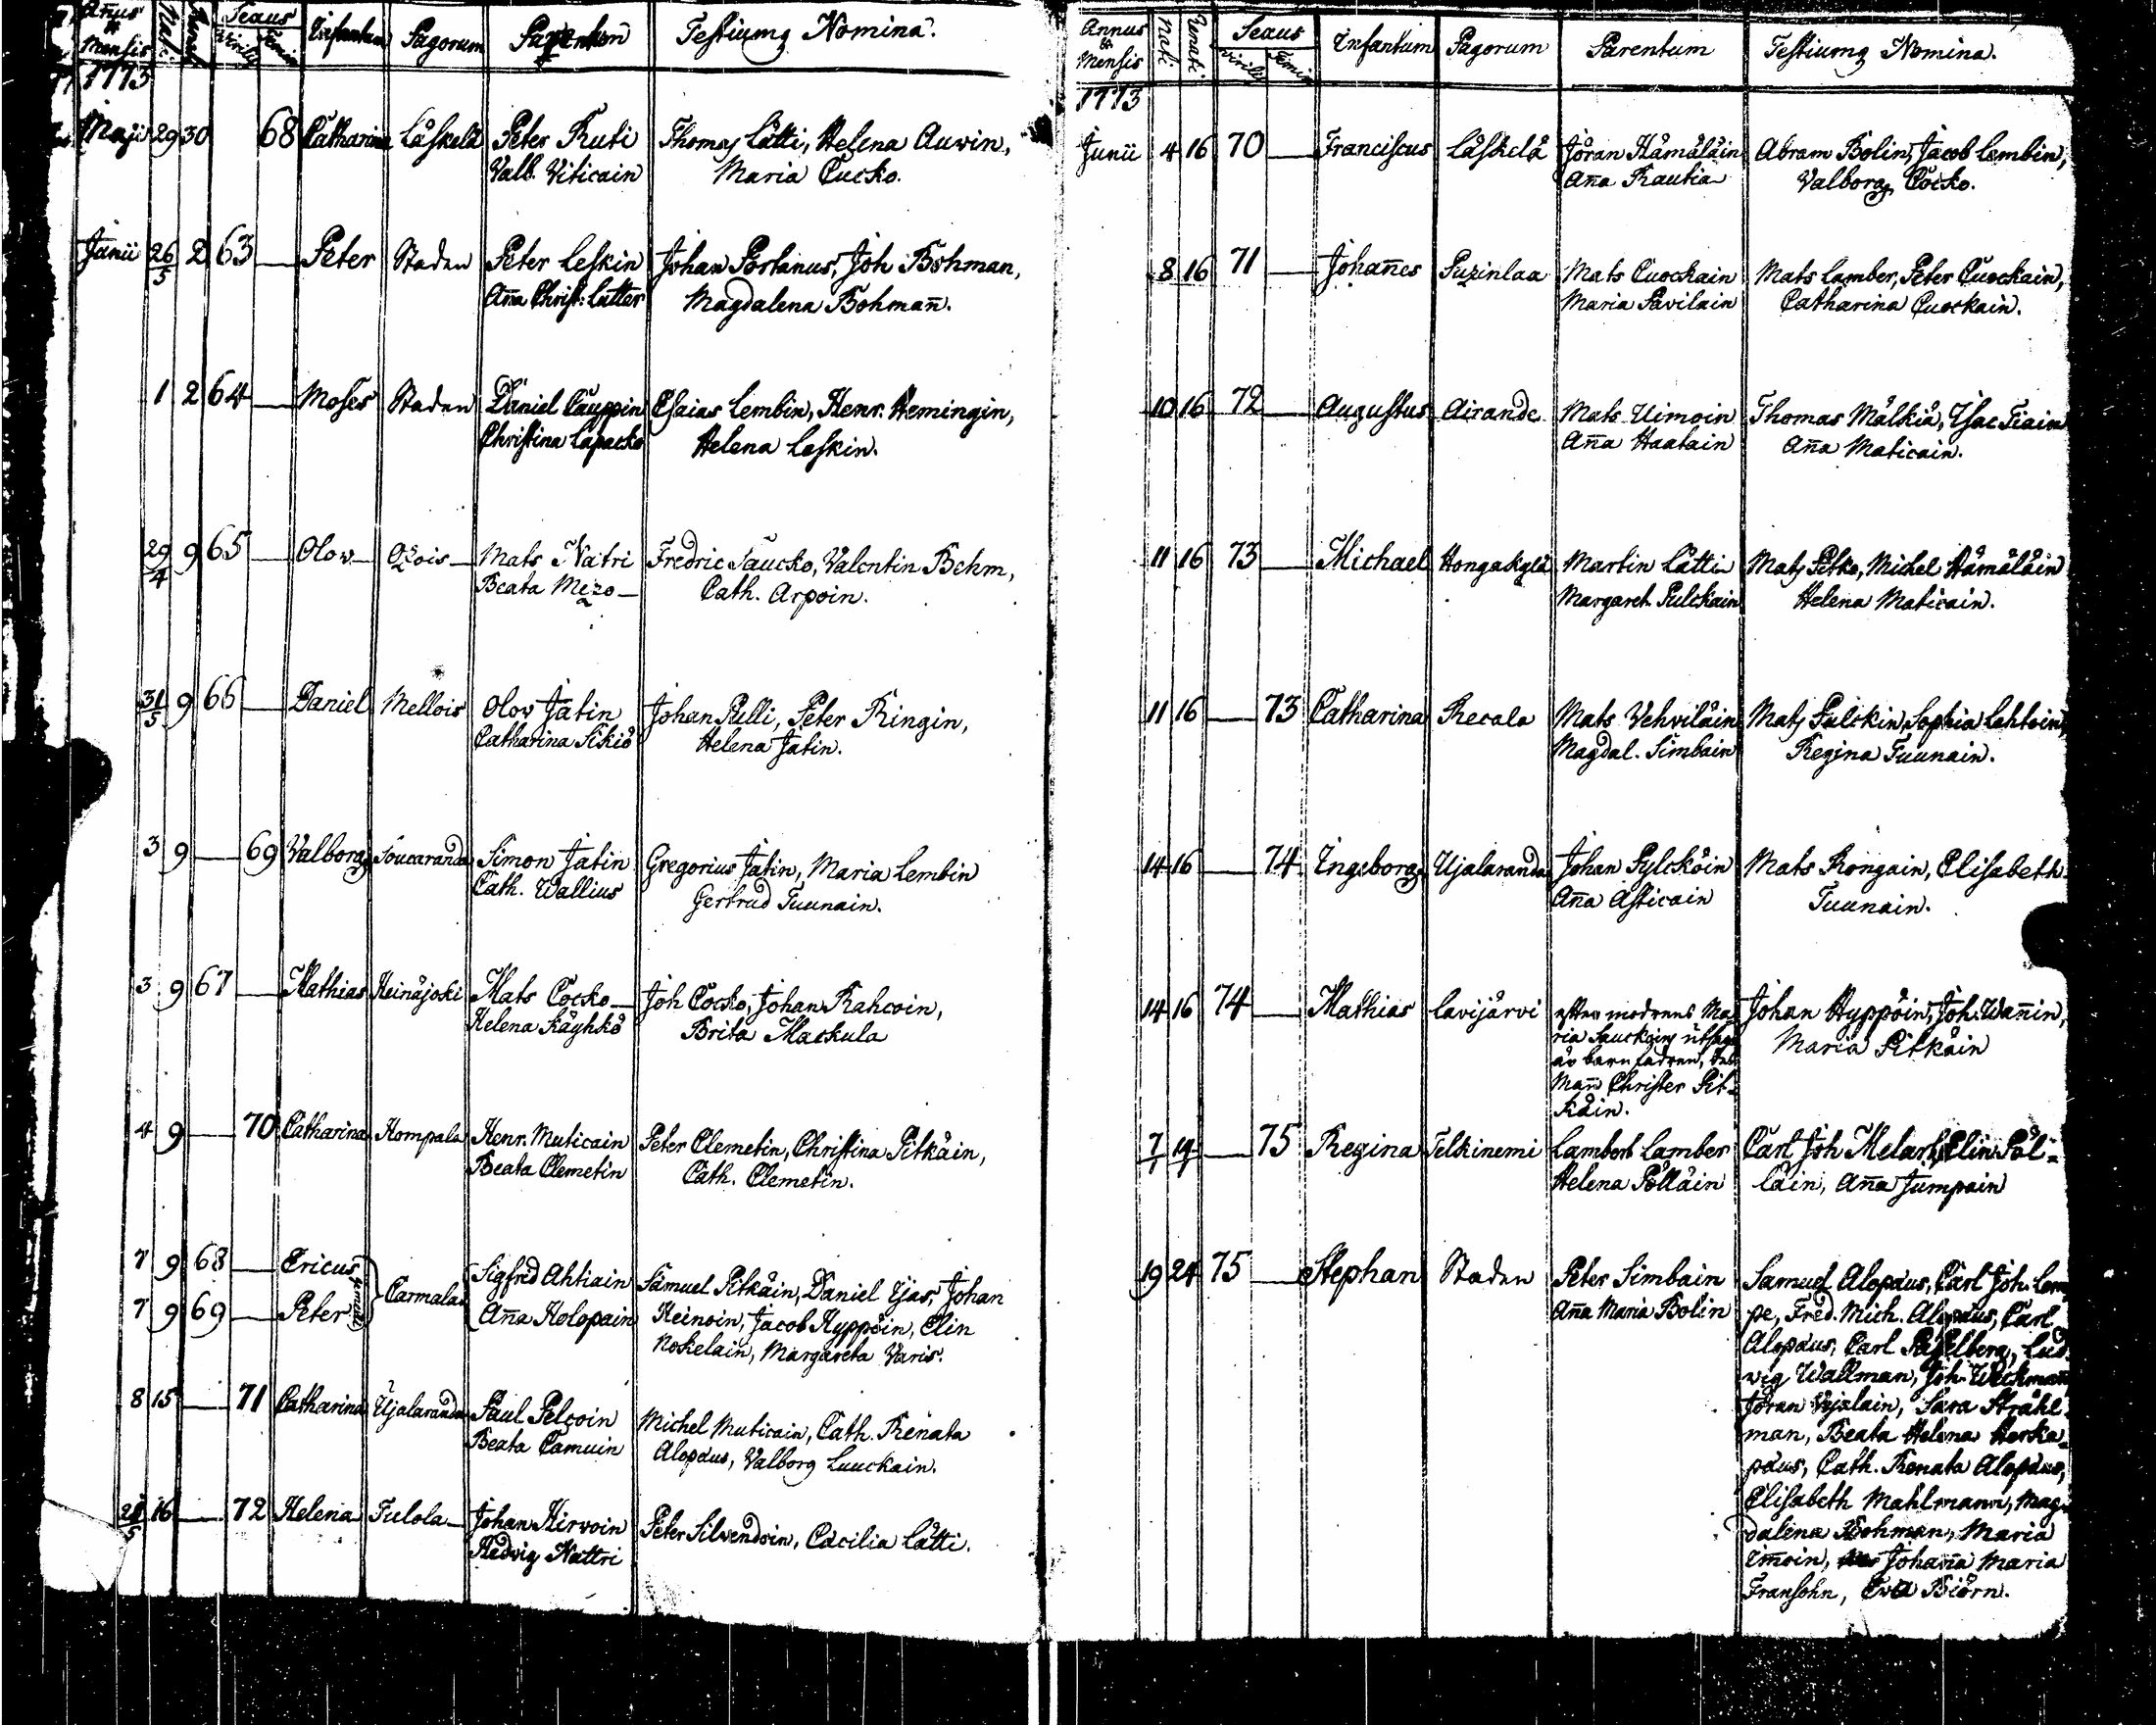 Añus & Mensis Nati Renati Sexus Virilis Femin Infantum Pagorum Parentum Testiumq Nomina.
1773
Maji 29 30 68 Catharina Läskelä Peter Ruti Thomas Lätti, Helena Auvin,
Valb. Viticain Maria Cucko.
Junii 26/5 2 63 — Peter Staden Peter Leskin Johan Portanus, Joh Bohman,
Aña Christ: Lutter Magdalena Bohmañ.
1 2 64 — Moses Staden Daniel Cauppin Esaias Lembin, Henr. Hemingin,
Christina Lapacko Helena Leskin.
29/4 9 65 — Olow Ozois Mats Natri Fredric Taucko, Valentin Behm,
Beata Mezo Cath. Arpoin.
31/5 9 66 — Daniel Mellois Olov Jatin Johan Pulli, Peter Ringin,
Catharina Sikiö Helena Jatin.
3 9 — 69 Valborg Soucaranda Simon Jatin Gregorius Jatin, Maria Lembin
Cath. Wallius Gertrud Tuunain.
3 9 67 — Mathias Heinäjoki Mats Cocko Joh Cocko, Johan Rahcoin,
Helena Käyhkö Brita Mackula
4 9 — 70 Catharina Hompala Henr. Muticain Peter Clemetin, Christina Pitkäin,
Beata Clemetin Cath. Clemetin.
7 9 68 — Ericus gemelli Carmala Sigfred Ahtiain Samuel Pitkäin, Daniel Ijas, Johan
7 9 69 — Peter Aña Holopain Heinoin, Jacob Hyppöin, Elin
Nokelain, Margareta Varis.
8 15 — 71 Catharina Ujalaranda Paul Pelcoin Michel Muticain, Cath. Renata
Beata Camuin Alopæus, Valborg Luuckain.
5 16 — 72 Helena Tulola Johan Hirvoin Peter Silvendoin, Cæcilia Lätti.
Hedvig Nattri
Annus & Mensis Nati Renati Sexus Virilis Femin Infantum Pagorum Parentum Testiumq Nomina.
1773
Junii 4 16 70 — Franciscus Läskelä Jöran Hämäläin Abram Bolin, Jacob Lembin,
Aña Rautia Valborg Cocko.
8 16 71 — Johañes Puzinlaa Mats Cuockain Mats Lamber, Peter Cuockain,
Maria Pavilain Catharina Cuockain.
10 16 72 — Augustus Airande Mats Uimoin Thomas Mälkiä, Isac Tiain
Aña Haatain Aña Maticain.
11 16 73 — Michael Hongakylä Martin Lätti Mats Pitko, Michel Hämäläin
Margaret. Pulckain Helena Maticain.
11 16 — 73 Catharina Recala Mats Vehviläin Mats Pulckin, Sophia Lehtoin,
Magdal. Simbain Regina Tuunain.
14 16 — 74 Ingeborg Ujalaranda Johan Pylcköin Mats Rongain, Elisabeth
Aña Asticain Tuunain.
14 16 74 — Mathias Lavijärvi efter modrens Ma= Johan Hyppöin, Joh. Wañin,
ria Sauckoins utsago Maria Pitkäin
är barnfadren,
Mañ Christer Pit=
käin.
7/1 — 75 Regina Telkinemi Lambert Lamber Carl Joh Melart, Elin Pöl=
Helena Pölläin läin, Aña Jumpain
19 24 75 — Stephan Staden Peter Simbain Samuel Alopæus, Carl Joh. Lem
Aña Maria Bolin pe, Fred. Mich. Alopæus, Carl
Alopæus, Carl Lud
wig Wallman, Joh. Weckmañ
Jöran Vjalain, Sara Stråhl
man, Beata Helena Herka=
pæus, Cath. Renata Alopæus,
Elisabeth Mahlmann, Mag
dalena Bohman, Maria
Imoin, Johaña Maria
Fransohn, Eva Biörn.